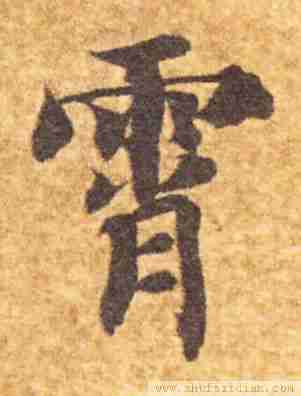 霄
www.shufazidian.com